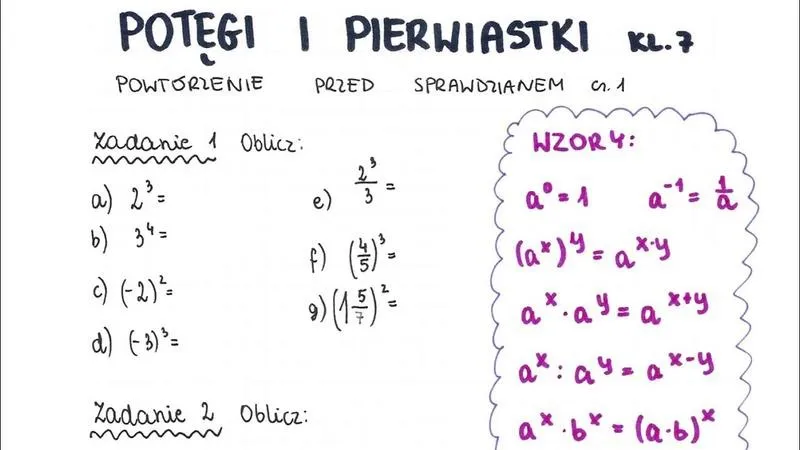 POTĘGI I PIERWIASTKI KL.7
POWTÓRZENIE PRZED SPRAWDZIANEM cz.1
Zadanie 1 Oblicz:
a) 2³=
b) 3⁴=
c) (-2)²=
d) (-3)³=
e) 2³/3=
f) (4/5)³=
g) (1 5/7)²=
Zadanie 2 Oblicz:
WZORY:
a⁰=1 a⁻¹=1/a
(aˣ)ʸ=aˣ·ʸ
aˣ·aʸ=aˣ⁺ʸ
aˣ:aʸ=aˣ⁻ʸ
aˣ·bˣ=(a·b)ˣ